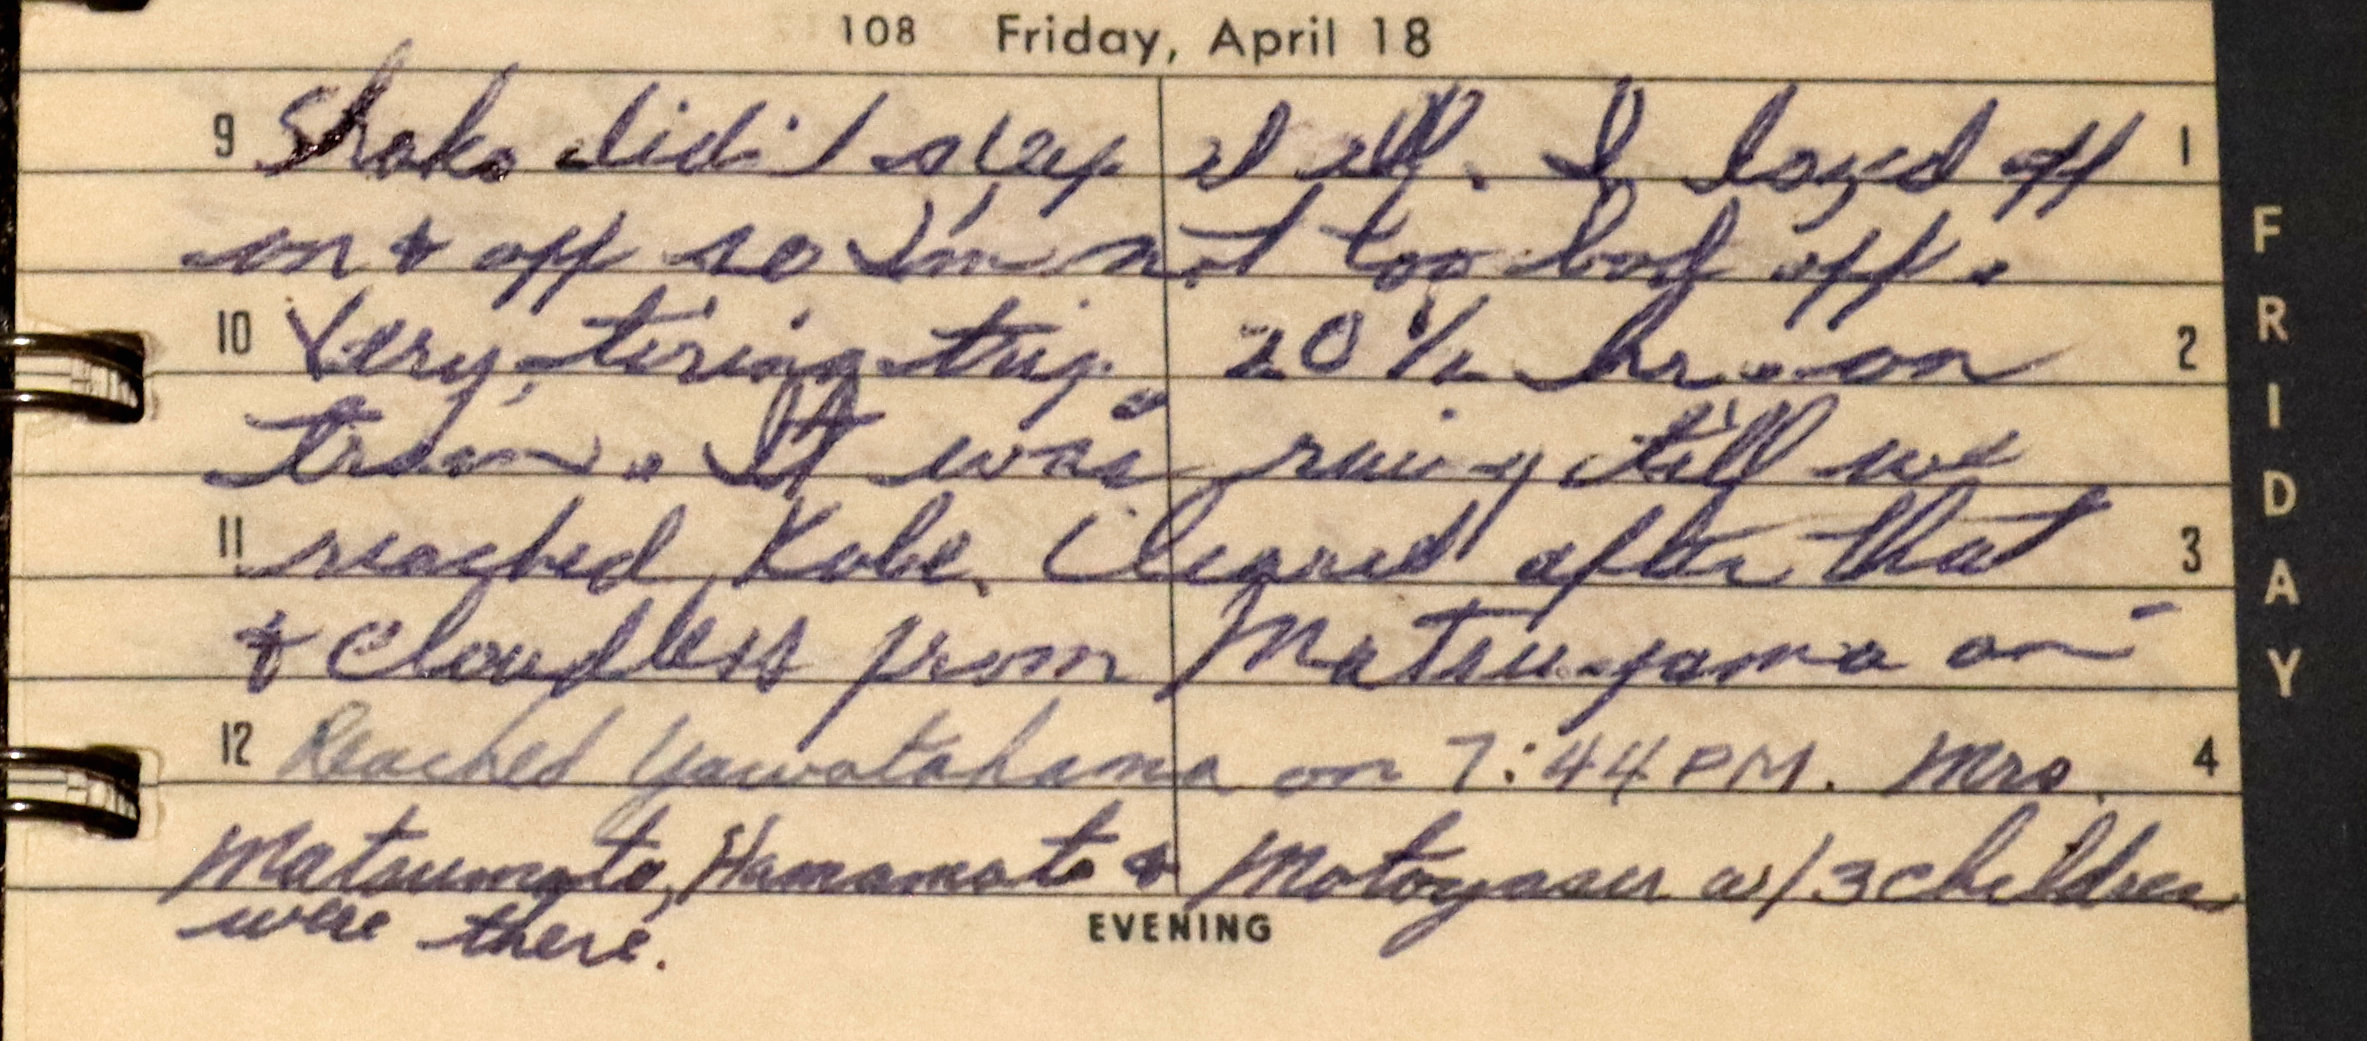 108 Friday, April 18
9 Shoko didn't sleep at all. I dozed off 1
on & off so I'm not too bad off.
10 Very tiring trip. 20 1/2 hr. on 2
train. It was raining till we
11 reached Kobe. Cleared after that 3
& cloudless from Matsuyama on-
12 Reached Yawatahama on 7:44 PM. Mrs. 4
Matsumoto, Hamamoto & Motoyasu w/3 children
were there.
EVENING
FRIDAY